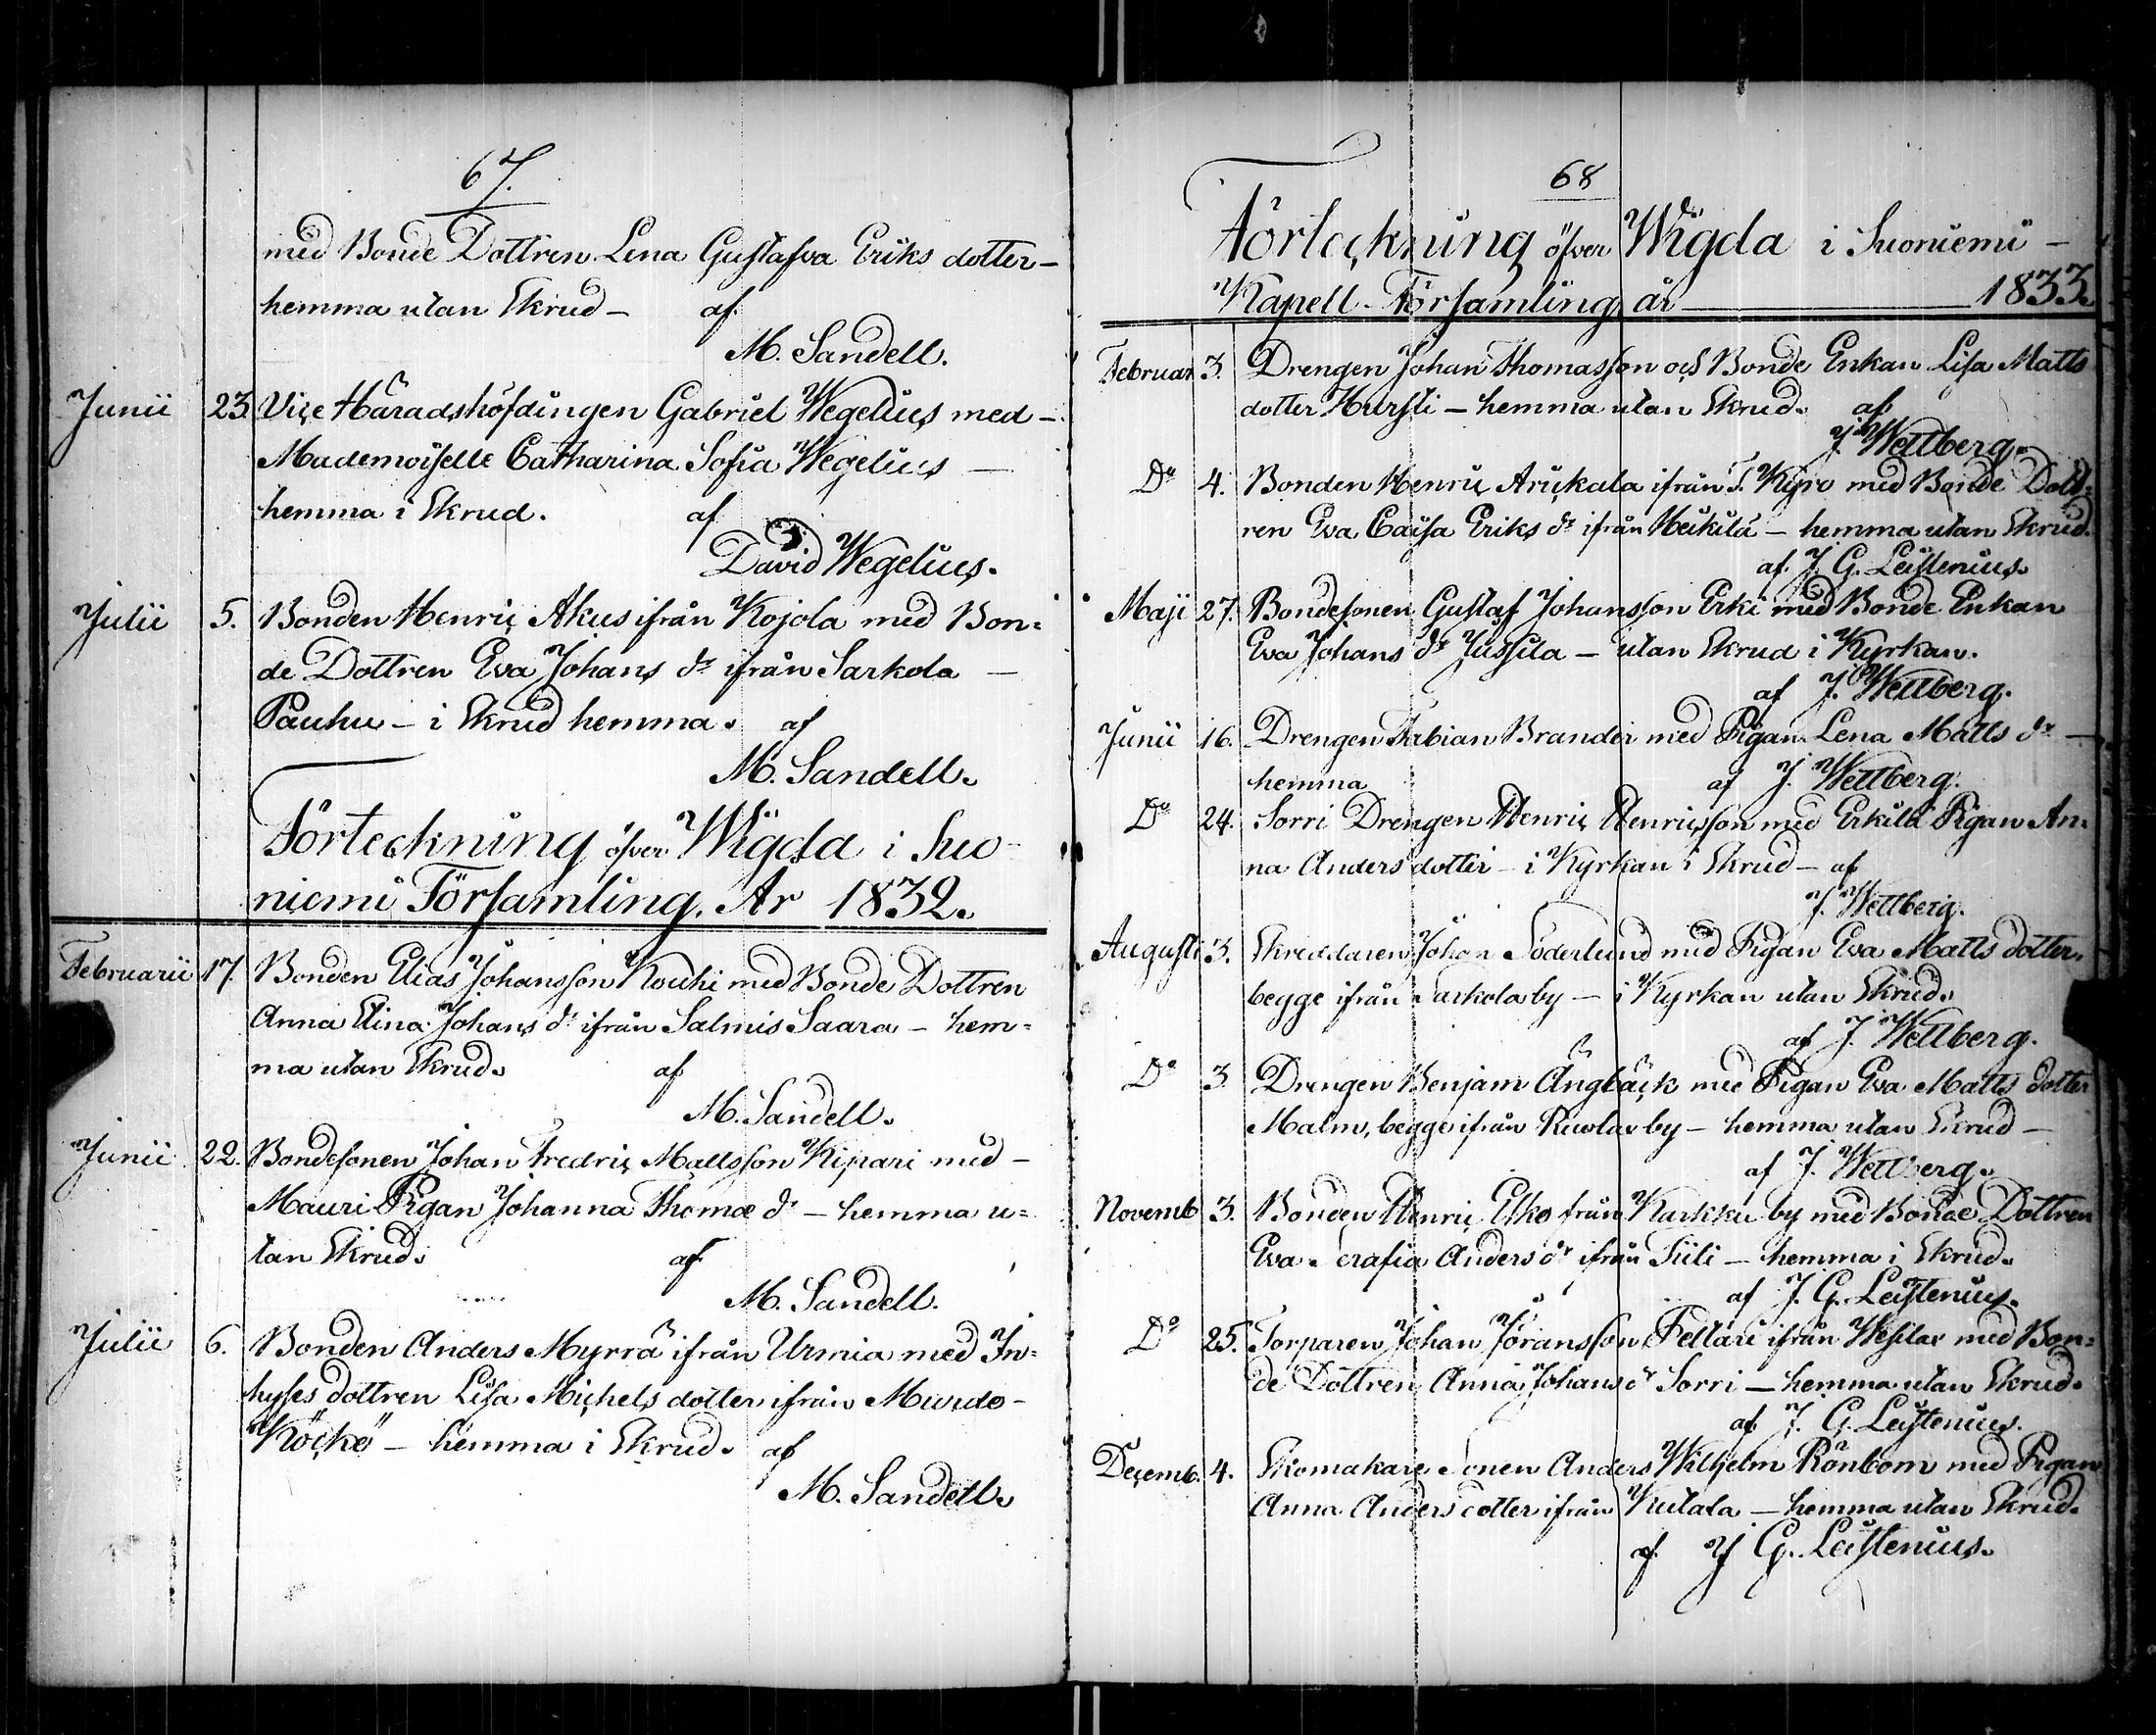 67.
med Bonde Dottren Lena Gustafva Eriks dotter –
hemma utan Skrud – af
M. Sandell.
Junii 23. Vice Häradshöfdingen Gabriel Wegelius med –
Mademoiselle Catharina Sofia Wegelius –
hemma i Skrud. af
David Wegelius.
Julii 5. Bonden Henric Akus ifrån Kojola med Bon=
de Dottren Eva Johans dr ifrån Sarkola –
Pauhu – i Skrud hemma. af
M. Sandell.
Förteckning öfver Wigda i Suo-
niemi Församling. År 1832.
Februarii 17. Bonden Elias Johansson Kouhi med Bonde Dottren
Anna Elina Johans dr ifrån Salmis Saara – hem=
ma utan Skrud. af
M. Sandell.
Junii 22. Bondesonen Johan Fredric Mattsson Kipari med –
Mauri Pigan Johanna Thomæ dr – hemma u=
tan Skrud. af
M. Sandell.
Julii 6. Bonden Anders Myrrä ifrån Urmia med In=
hyses dottren Lisa Michels dotter ifrån –
Köckö – hemma i Skrud. af
M. Sandell.
68
Förteckning öfver Wigda i Suoniemi –
Kapell Församling år 1833.
Februar. 3. Drengen Johan Thomasson och Bonde Enkan Lisa Matts
dotter Hursti – hemma utan Skrud. af
J. Wettberg.
Do 4. Bonden Henric Aruckala ifrån T. Kyro med Bonde Dott=
ren Eva Caisa Eriks dr ifrån Heikilä – hemma utan Skrud.
af J. G. Leistenius.
Maji 27. Bondesonen Gustaf Johansson Erki med Bonde Enkan
Eva Johans dr Jussila – utan Skrud i Kyrkan.
af J. Wettberg.
Junii 16. Drengen Fabian Brander med Pigan Lena Matts dr –
hemma af J. Wettberg.
Do 24. Sorri Drengen Henric Henricsson med Erkilä Pigan An=
na Anders dotter – i Kyrkan i Skrud – af
J. Wettberg.
Augusti 3. Skreddaren Johan Söderlund med Pigan Eva Matts dotter.
begge ifrån Sarkola by – i Kyrkan utan Skrud.
af J. Wettberg.
Do 3. Drengen Benjam Ängbäck med Pigan Eva Matts dotter
Malm, begge ifrån Kuola by – hemma utan Skrud –
af J. Wettberg.
Novemb. 3. Bonden Henric Esko från Karkku by med Bonde Dottren
Eva Serafia Anders dr ifrån Siili – hemma i Skrud.
af J. G. Leistenius.
Do 25. Torparen Johan Jöransson Peltari ifrån Wesilax med Bon=
de Dottren Anna Johans dr Sorri – hemma utan Skrud.
af J. G. Leistenius.
Decemb. 4. Skomakare Sonen Anders Wilhelm Rönbom med Pigan
Anna Anders dotter ifrån Kutala – hemma utan Skrud.
af J G. Leistenius.